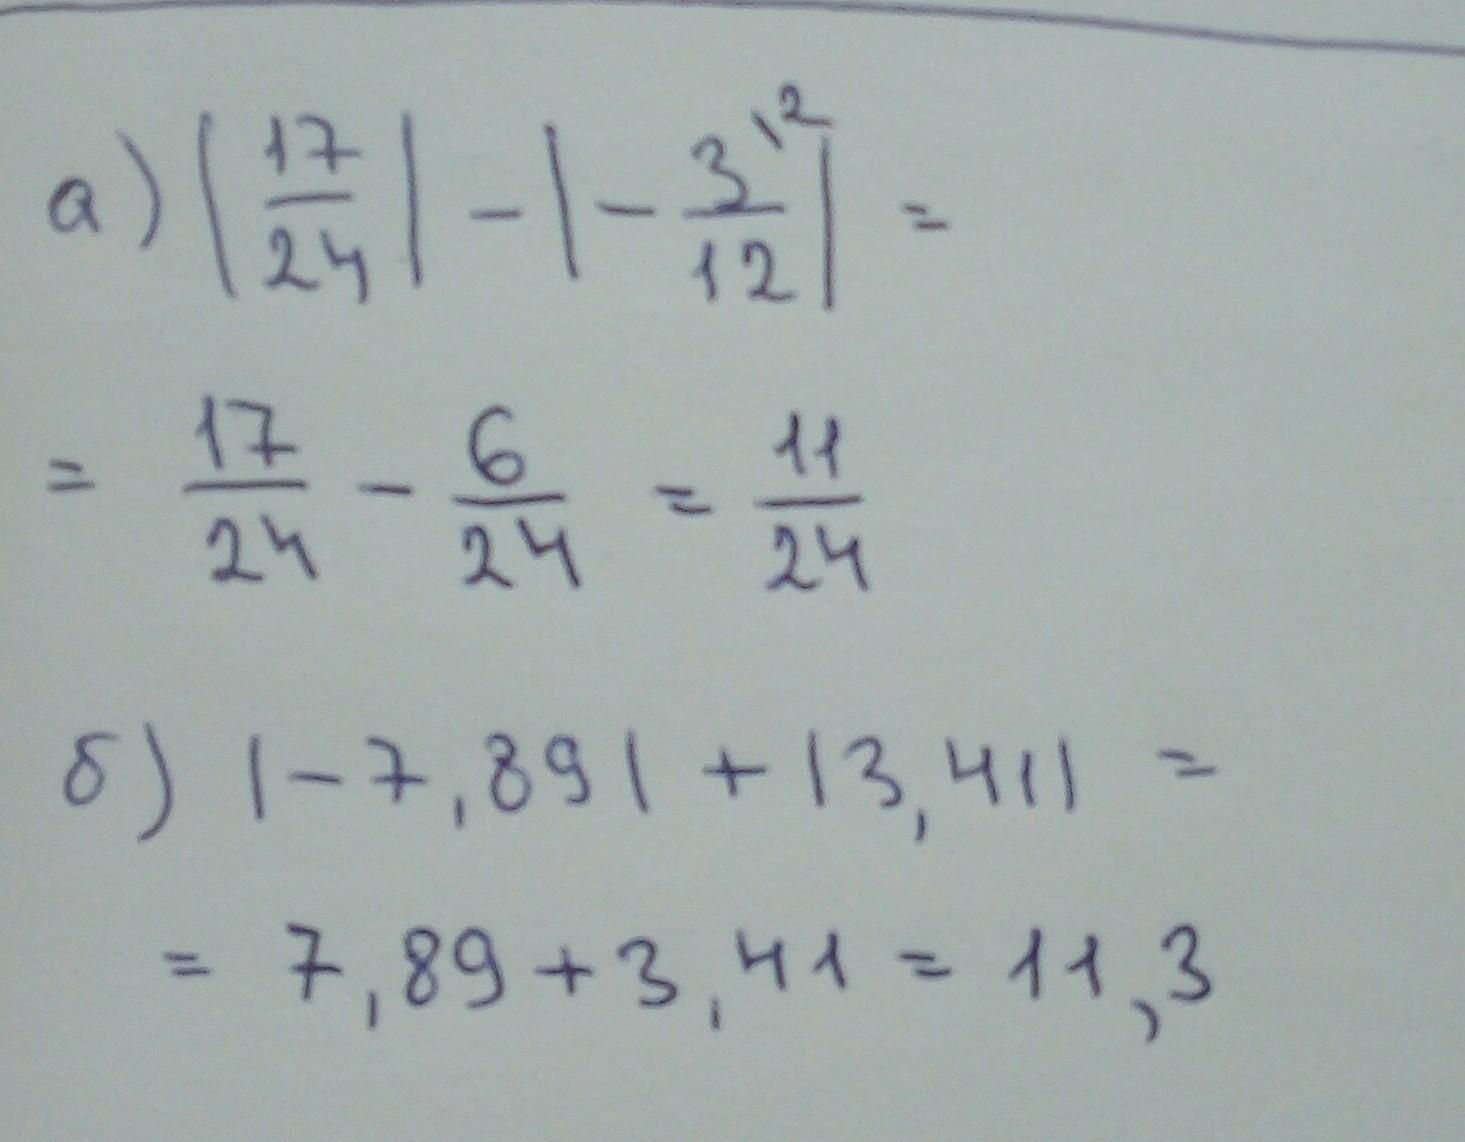 а) |17/24| - |- 3\2/12| =
= 17/24 - 6/24 = 11/24
б) |-7,89| + |3,41| =
= 7,89 + 3,41 = 11,3